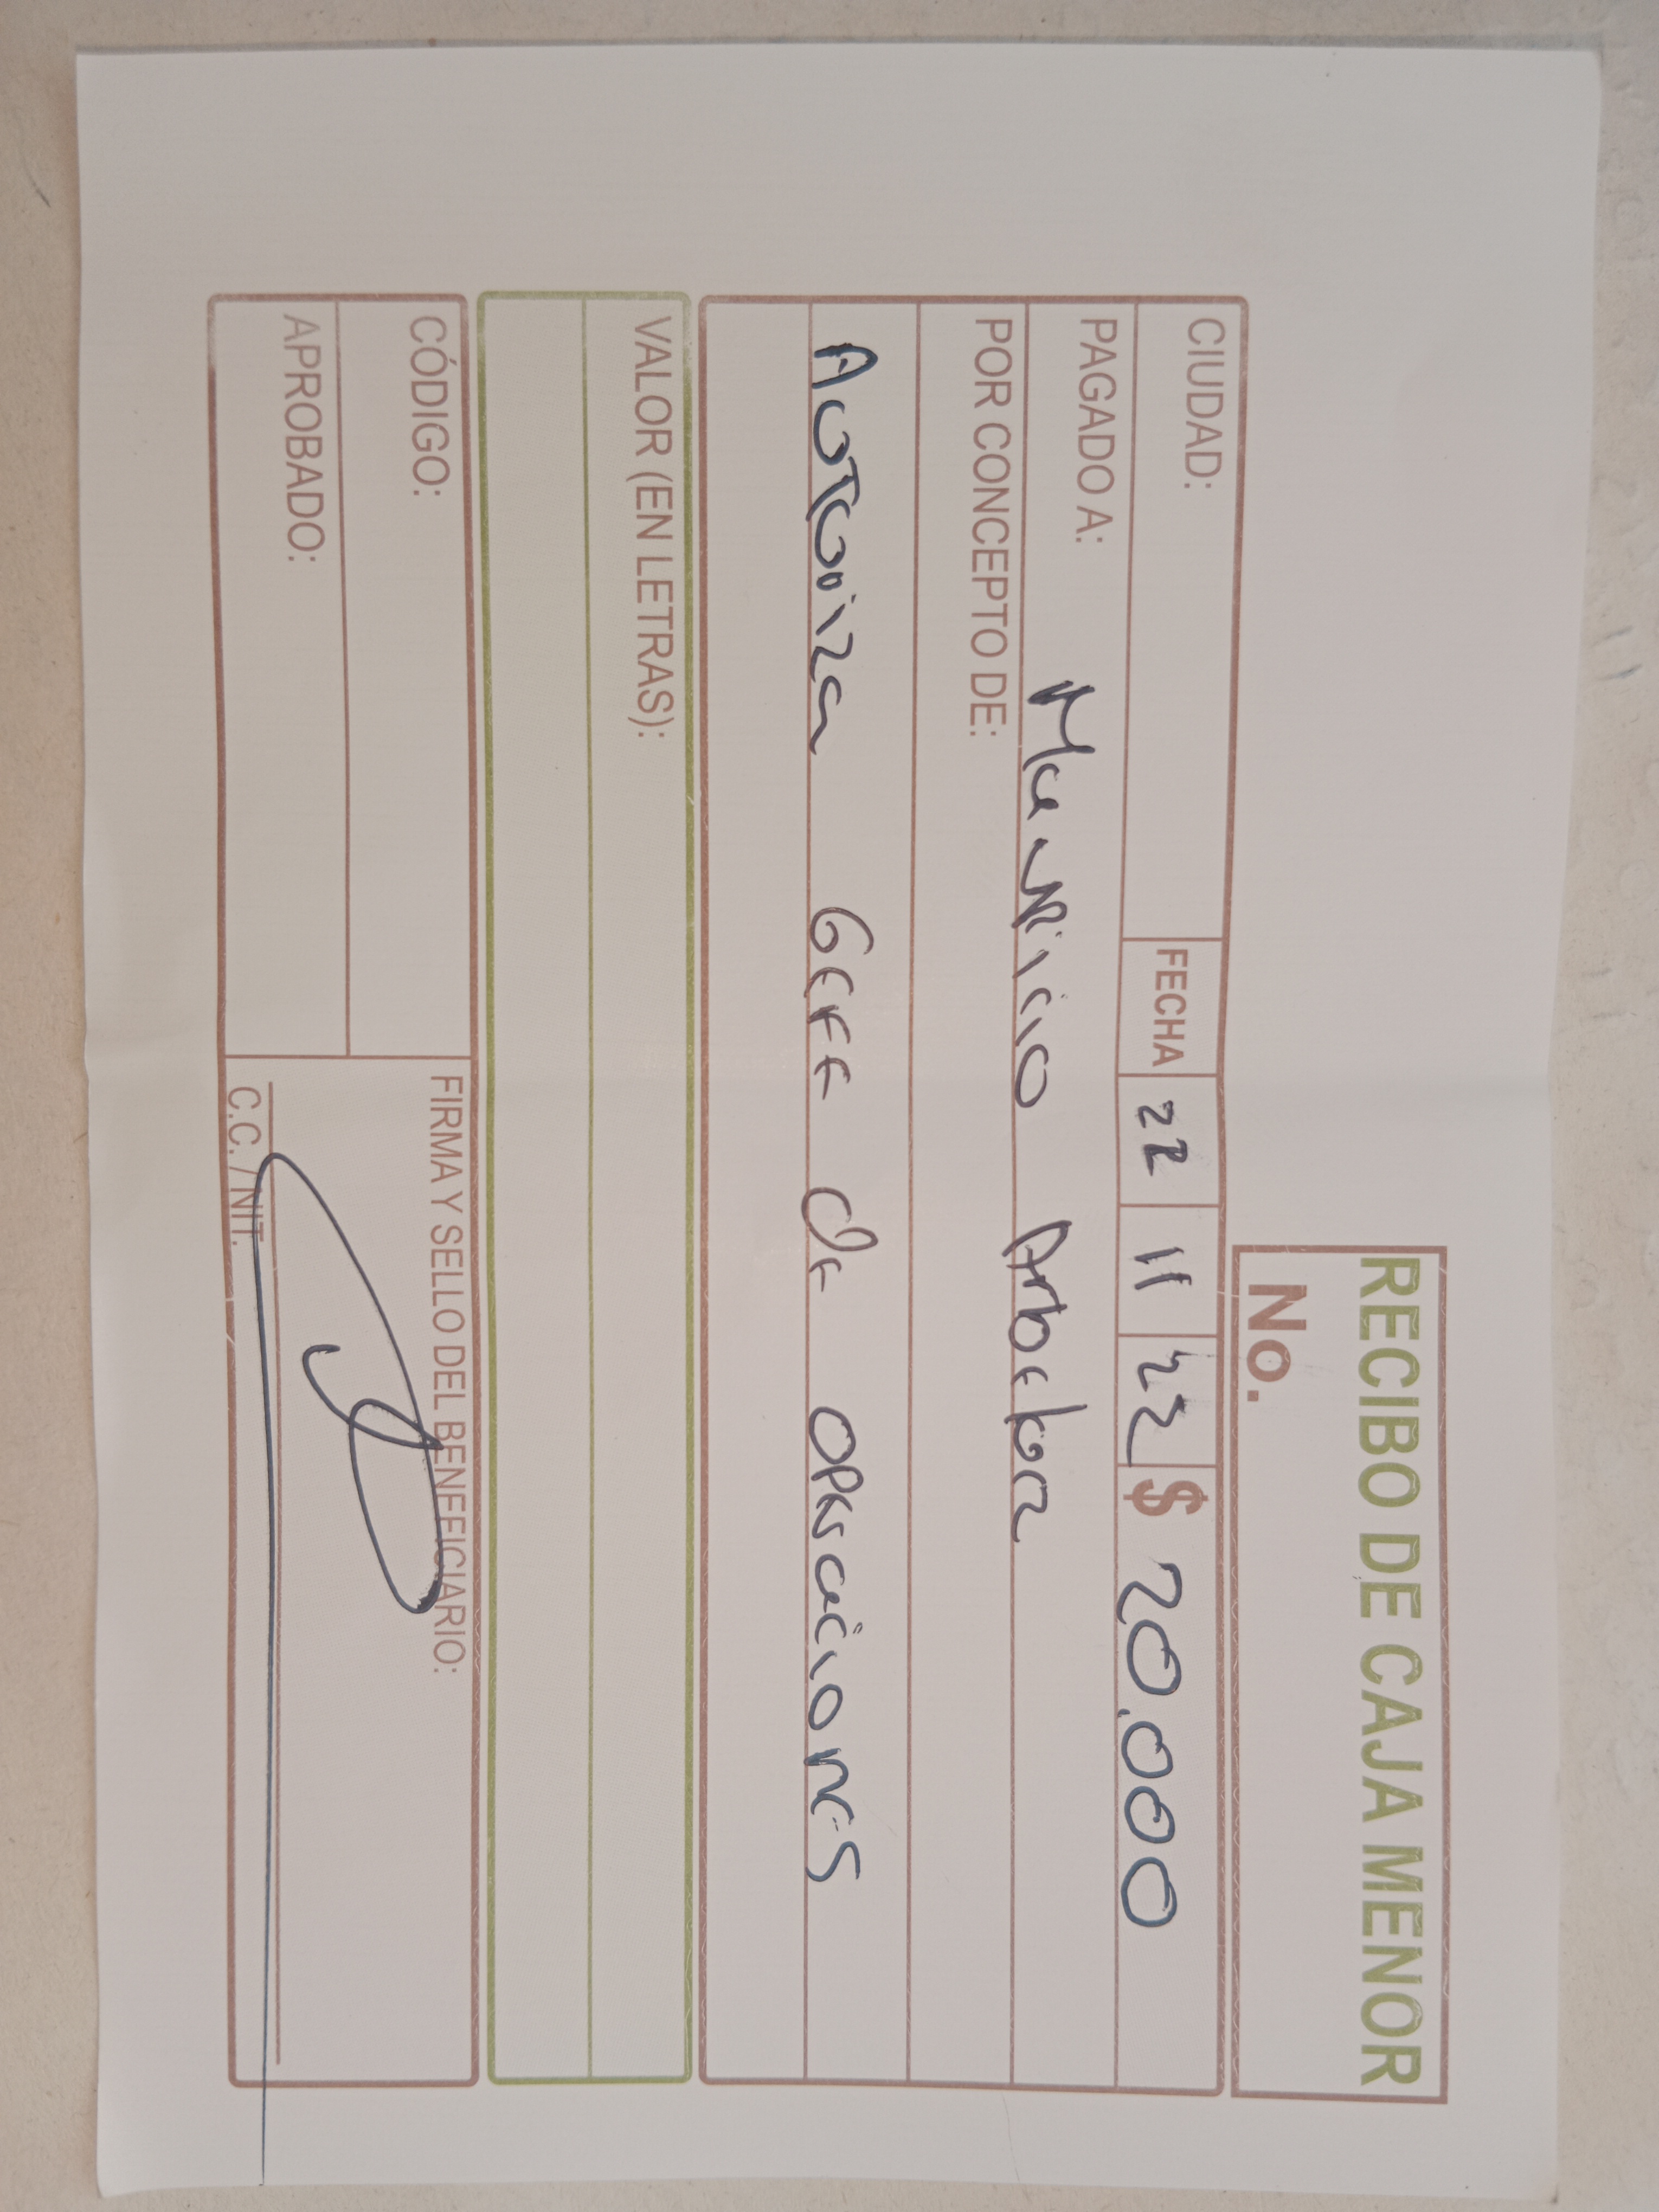 RECIBO DE CAJA MENOR
No.
CIUDAD: FECHA 22 11 22 $ 20.000
PAGADO A: Mauricio
POR CONCEPTO DE:
Autoriza Gefe de operaciones
VALOR (EN LETRAS):
CÓDIGO:
APROBADO:
FIRMA Y SELLO DEL BENEFICIARIO:
C.C. / NIT.